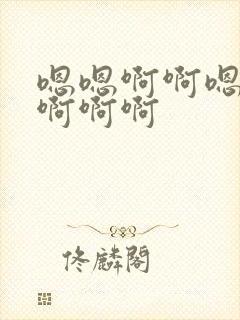 嗯嗯啊啊嗯
啊啊啊
佟麟阁